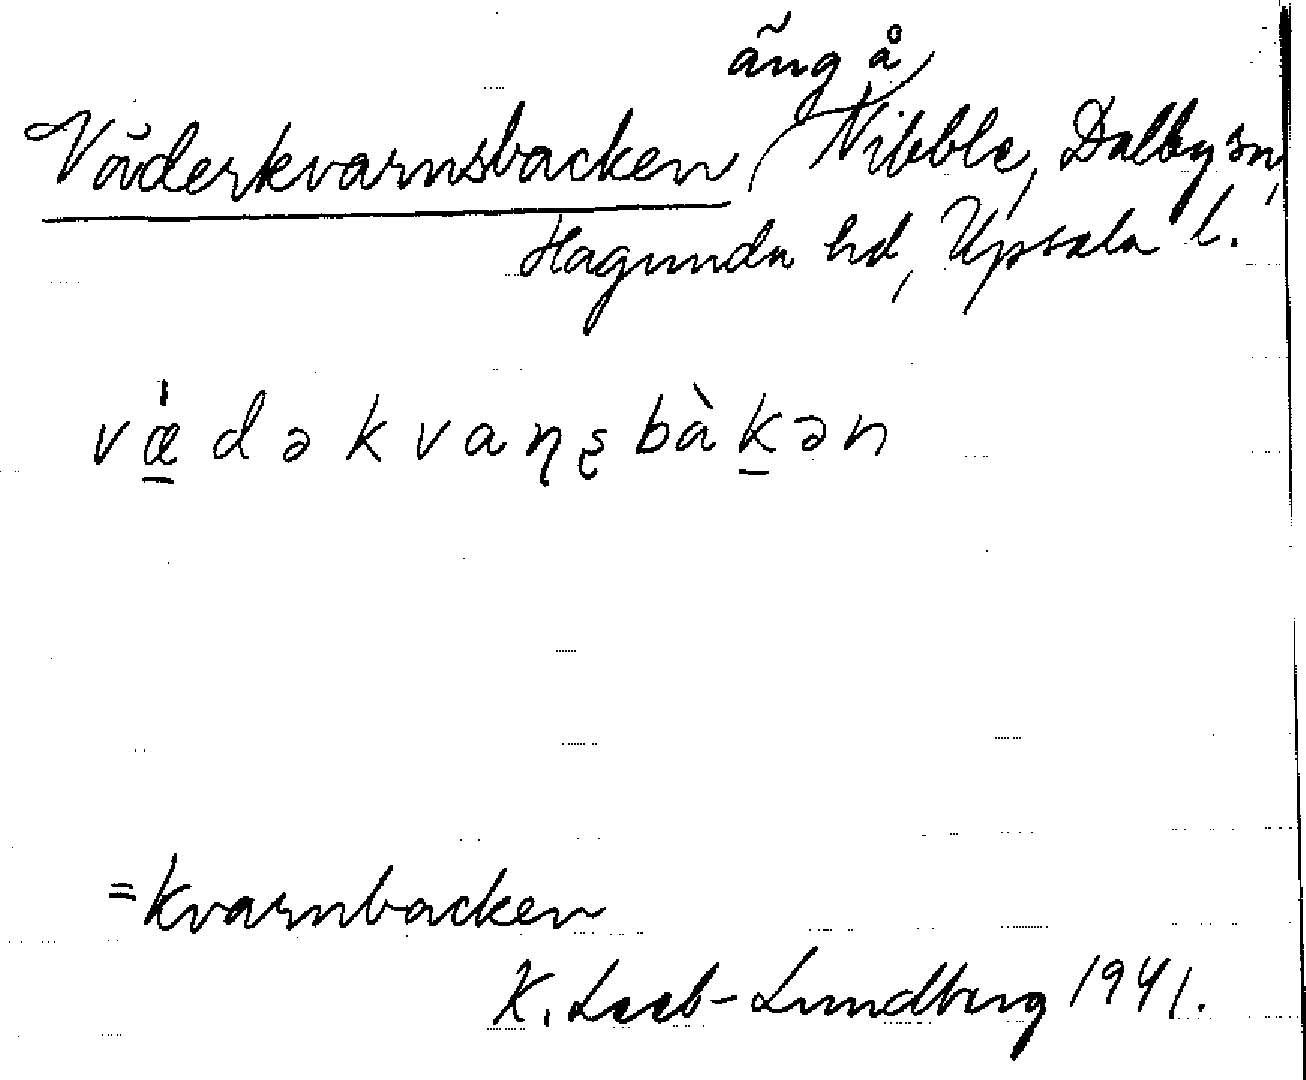 äng å
Väderkvarnsbacken, Nibble, Dalby sn,
Hagunda hd, Upsala l.
væ̲̀dəkvaɳʂbàk̲ən
=Kvarnbacken
K. Leeb-Lundberg 1941.